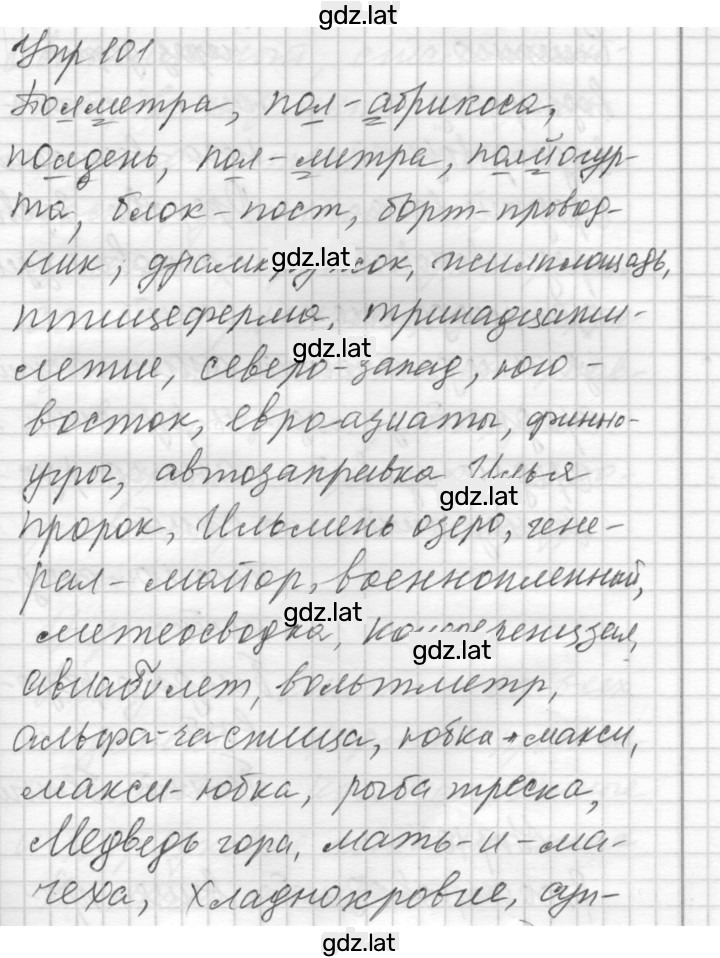 gdz.lat
Упр 101
Полметра, пол-абрикоса,
полдень, пол-метра, полйогур-
та, блок-пост, борт-провод-
ник, драмкружок, жилплощадь,
gdz.lat
птицеферма, тринадцати-
gdz.lat
летие, северо-запад, юго-
восток, евроазиаты, финно-
угры, автозаправка Илья
gdz.lat
пророк, Ильмень озеро, гене-
рал-майор, военнопленный,
gdz.lat
метеосводка,
gdz.lat
авиабилет, вольтметр,
альфа-частица, юбка-макси,
макси-юбка, рыба треска,
Медведь гора, мать-и-ма-
чеха, хладнокровие, суп-
gdz.lat